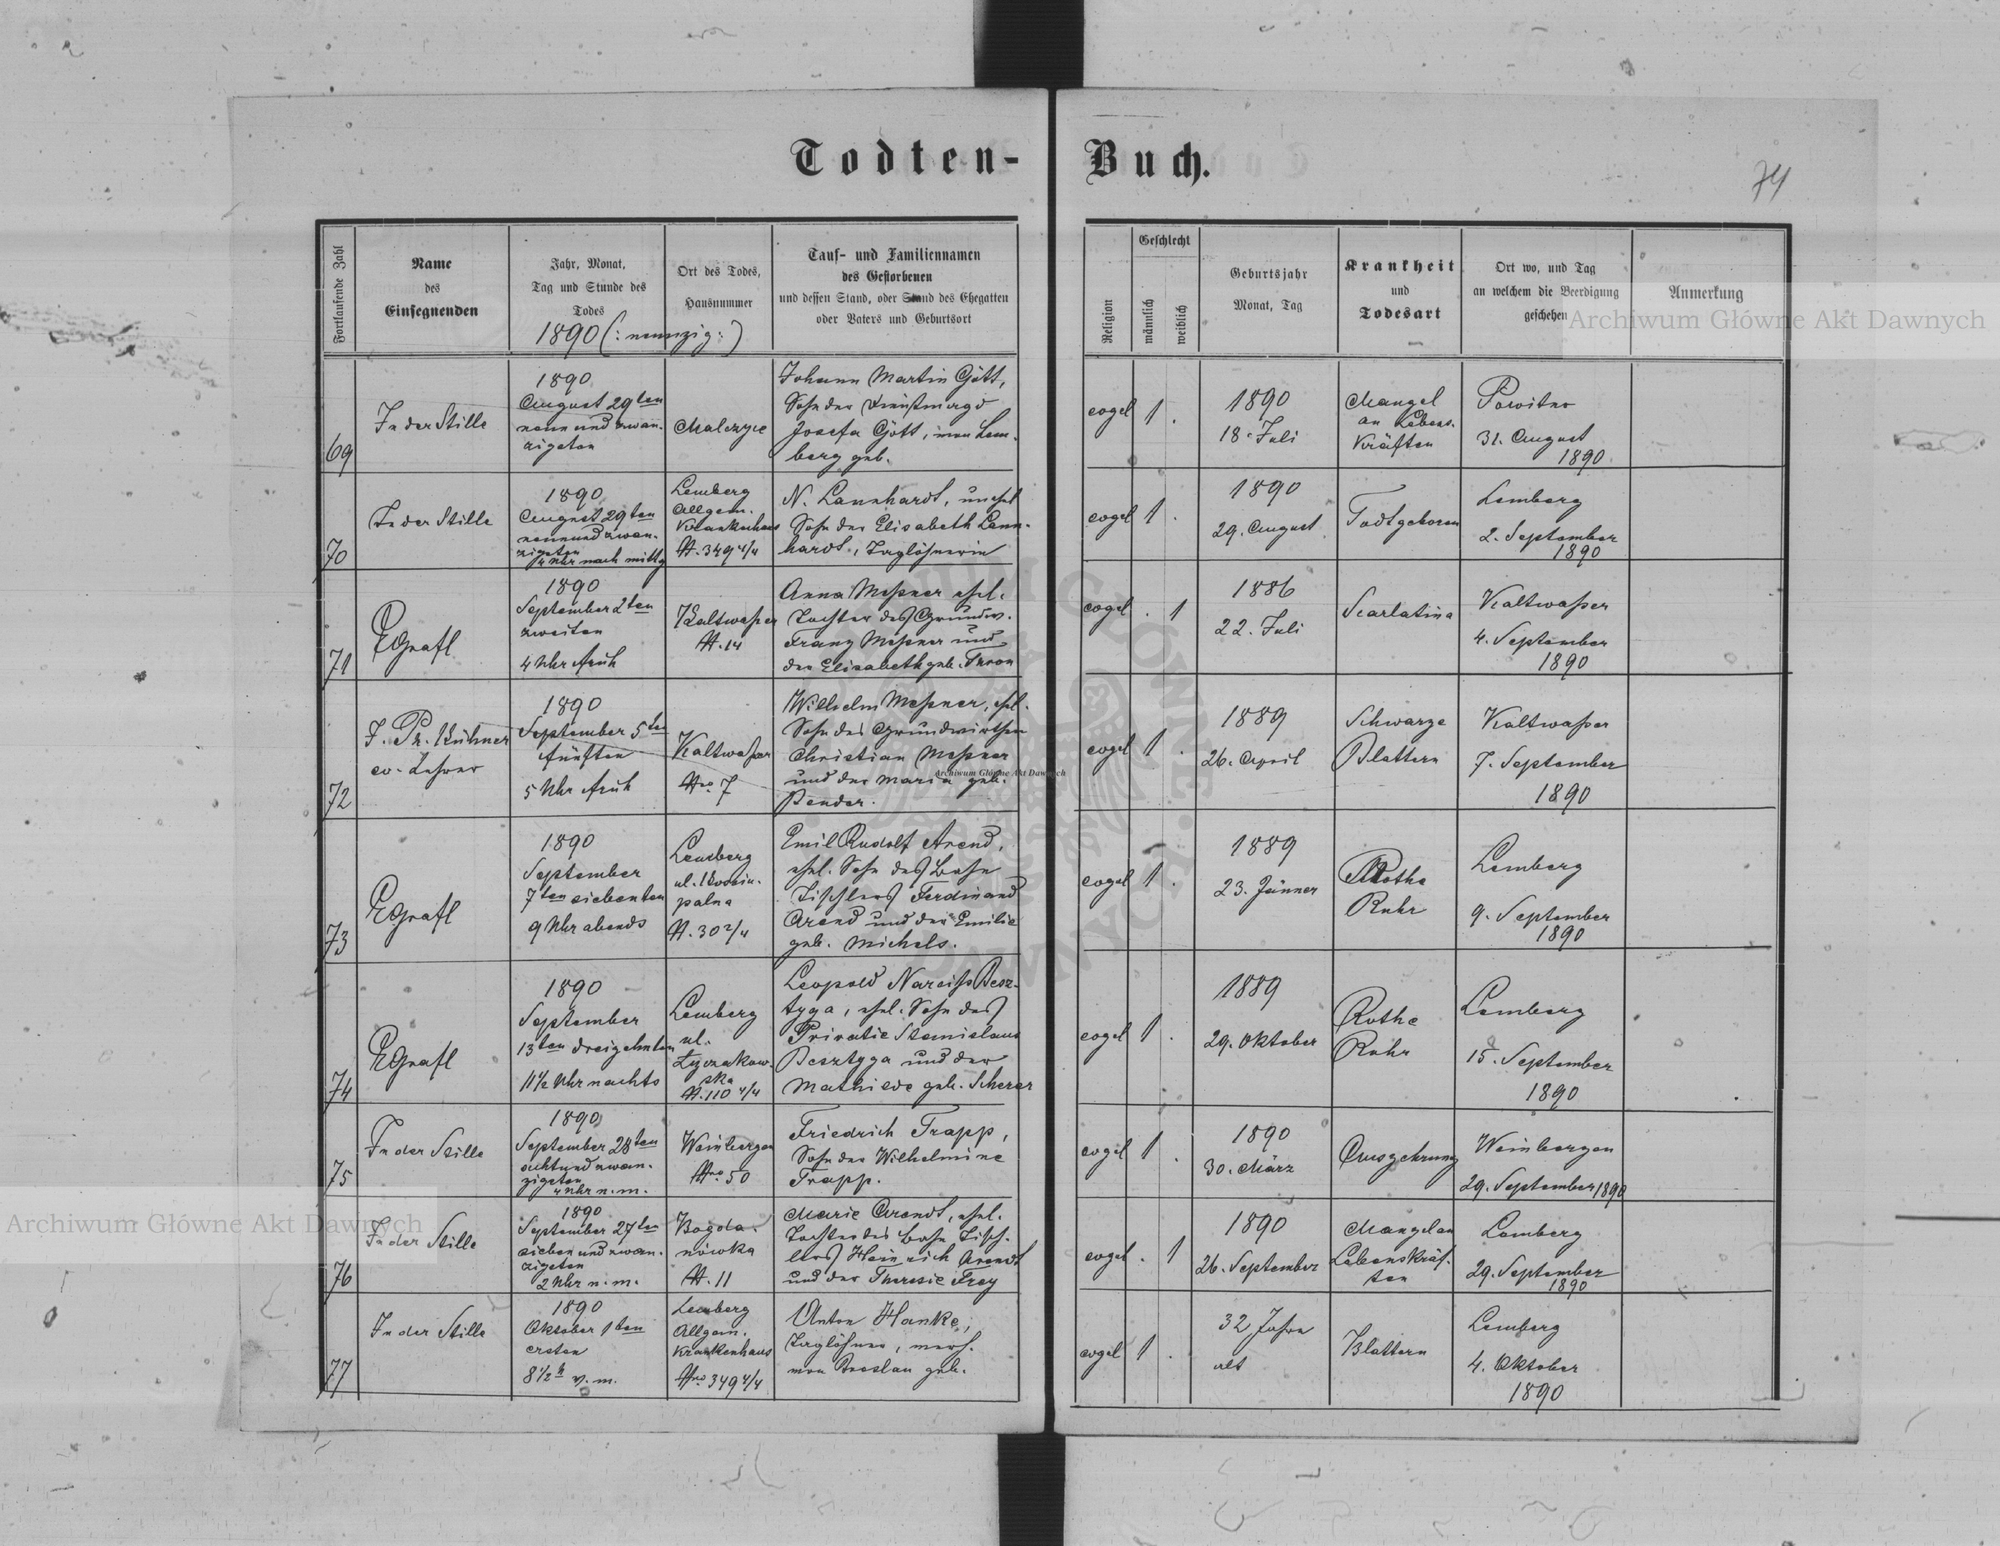 Todten-Buch.
74
Fortlaufende Zahl
Name
des
Einsegnenden
Jahr, Monat,
Tag und Stunde des
Todes
1890 (: neunzig :)
Ort des Todes,
Hausnummer
Tauf- und Familiennamen
des Gestorbenen
und dessen Stand, oder Stand des Ehegatten
oder Vaters und Geburtsort
Religion
Geschlecht
männlich
weiblich
Geburtsjahr
Monat, Tag
Krankheit
und
Todesart
Ort wo, und Tag
an welchem die Beerdigung
geschehen
Anmerkung
Archiwum Główne Akt Dawnych
69
In der Stille
1890
August 29ten
neun und zwan-
zigsten
Malczyce
Johann Martin Gött,
Sohn der Dienstmagd
Josefa Gött, in Lem-
berg geb.
evgel
1
.
1890
18. Juli
Mangel
an Lebens-
kräften
Powitno
31. August
1890
70
In der Stille
1890
August 29ten
neunundzwan-
zigsten
4 Uhr nach mittg
Lemberg
Allgem.
Krankenhaus
N. 349 4/4
N. Lannhardt, unehel
Sohn der Elisabeth Lann-
hardt, Taglöhnerin
evgel
1
.
1890
29. August
Todtgeboren
Lemberg
2. September
1890
71
EGrafl
1890
September 2ten
zweiten
4 Uhr früh
Kaltwaßer
N. 14
Anna Meßner ehel.
Tochter des Grundw.
Franz Meßner und
der Elisabeth geb. Thron
evgel
.
1
1886
22. Juli
Scarlatina
Kaltwaßer
4. September
1890
72
J. Ph. Kühner
ev. Lehrer
1890
September 5ten
fünften
5 Uhr früh
Kaltwaßer
Nro 7
Wilhelm Meßner, ehel.
Sohn des Grundwirthen
Christian Meßner
und der Maria geb.
Bender.
evgel
1
.
1889
26. April
Schwarze
Blattern
Kaltwaßer
7. September
1890
Archiwum Główne Akt Dawnych
73
EGrafl
1890
September
7ten siebenten
9 Uhr abends
Lemberg
ul.
palna
N. 30 2/4
Emil Rudolf Arend,
ehel. Sohn des Bahn
Tischlers Ferdinand
Arend und der Emilie
geb. Michels.
evgel
1
.
1889
23. Jänner
Rothe
Ruhr
Lemberg
9. September
1890
74
EGrafl
1890
September
13ten dreizehnten
11½ Uhr nachts
Lemberg
ul.
Łyczakow-
ska
N. 110 4/4
Leopold Narciss Besz-
tyga, ehel. Sohn des
Privatie Stanislaus
Besztyga und der
Mathilde geb. Scherer
evgel
1
.
1889
29. Oktober
Rothe
Ruhr
Lemberg
15. September
1890
75
In der Stille
1890
September 28ten
achtundzwan-
zigsten
4 Uhr n. m.
Weinbergen
Nro 50
Friedrich Trapp,
Sohn der Wilhelmine
Trapp.
evgel
1
.
1890
30. März
Auszehrung
Weinbergen
29. September 1890
Archiwum Główne Akt Dawnych
76
In der Stille
1890
September 27ten
sieben und zwan-
zigsten
2 Uhr n. m.
Bogda-
nówka
N. 11
Marie Arendt, ehel.
Tochter des Bahn Tisch-
lers Heinrich Arendt
und der Theresie Frey
evgel
.
1
1890
26. September
Mangel an
Lebenskräf-
ten
Lemberg
29. September
1890
77
In der Stille
1890
Oktober 1ten
ersten
8½ h v. m.
Lemberg
Allgem.
Krankenhaus
Nro 349 4/4
Anton Hanke,
Taglöhner,
Breslau geb.
evgel
1
.
32 Jahre
alt
Blattern
Lemberg
4. Oktober
1890